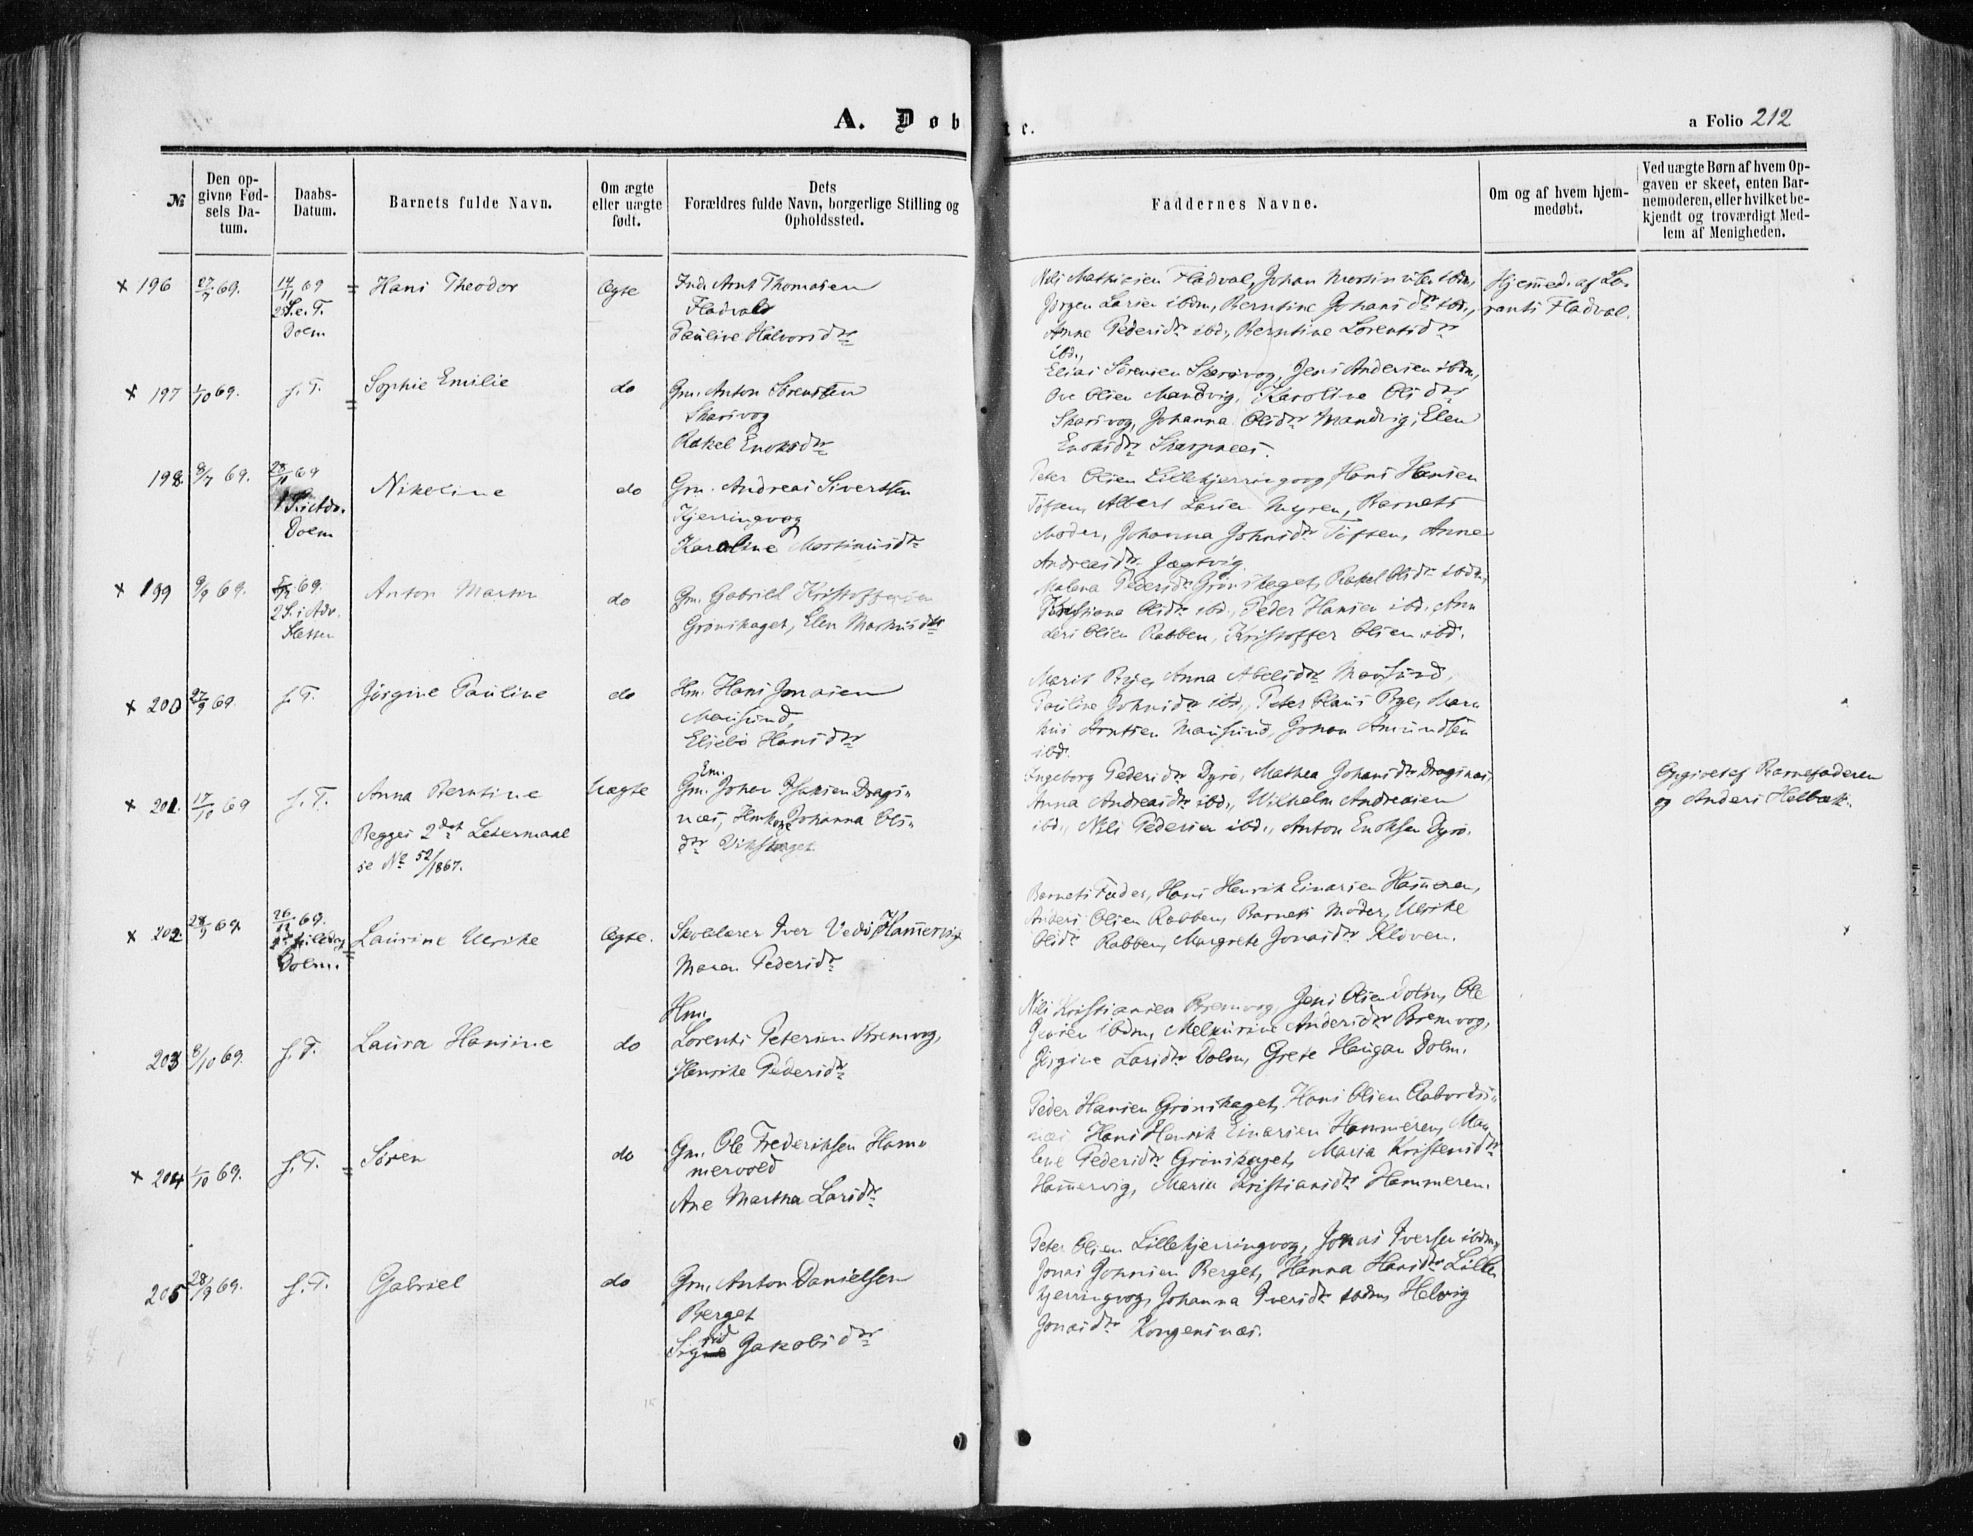 A. Døbte.
a Folio 212
№
Den opgivne Fødsels Datum.
Daabs-Datum.
Barnets fulde Navn.
Om ægte eller uægte født.
Dets Forældres fulde Navn, borgerlige Stilling og Opholdssted.
Faddernes Navne.
Om og af hvem hjemmedøbt.
Ved uægte Børn af hvem Opgaven er skeet, enten Barnemoderen, eller hvilket bekjendt og troværdigt Medlem af Menigheden.
× 196 27/7 69. 14/11 69 S. e. T. Dolm
Hans Theodor
Ægte
Arnt Thomasen
Fladval
Pauline Halvorsdtr
Nils Mathiesen Fladval, Johan Martin
Jørgen Larsen ibdm, Berntine Johansdtr ibd.,
Anne Pedersdtr ibd., Berntine Lorentsdtr
ibd.,
Hjemmed. af Lorents Fladval.
× 197 1/10 69. s. T.
Sophie Emilie
do
Gm. Anton Sørensen
Skarsvog
Rakel Enoksdtr
Elias Sørensen Skarsvog, Jens Andersen ibdm,
Ove Olsen Mandvig, Karoline Olsdtr
Skarsvog, Johanna Olsdtr Mandvig, Elen
Enoksdtr Skarpnæs.
198 8/7 69. 28/11 69 1 S. i Adv. Dolm
Nikoline
do
Gm. Andreas Sivertsen
Kjerringvog
Karoline Martinusdtr
Peter Olsen Lillekjerringvog, Hans Hansen
Tøften, Albert Larsen Myren, Barnets
Moder, Johanna Johnsdtr Tøften, Anne
Andreasdtr Jægtvig
× 199 9/9 69. 69. 2 S. i Adv.
Anton Martin
do
Gm. Gabriel Kristoffersen
Grønskaget, Elen Markusdtr
Malena Pedersdtr Grønskaget, Rakel Olsdtr ibdm,
Kristiane Olsdtr ibd., Peder Hansen ibd., Anders Olsen Rabben, Kristoffer Olsen ibd.
× 200 27/9 69. s. T.
Jørgine Pauline
do
Hm. Hans Jonasen
Mausund,
Elsebe Hansdtr
Marit Bye, Anna Abelsdtr Mausund,
Pauline Johnsdtr ibd., Peter Claus Bye, Markus Arntsen Mausund, Johan Amundsen
ibd.
× 201. 17/10 69 s. T.
Anna Berntine
Begges 2det Leiermaal
se No 52/1867.
Uægte
Em.
Gm. Johan Isaksen Dragsnæs, Johanna Olsdtr Vikskaget
Ingeborg Pedersdtr Dyrø, Mathea Johansdtr Dragsnæs,
Anna Andreasdtr ibd., Wilhelm Andreasen
ibd., Nils Pedersen ibd., Anton Enoksen Dyrø.
Opgivet af Barnefaderen
og Anders Holbæk.
× 202 69. 26/12 69. 2den Juledag Dolm.
Laurine Ulrike
Ægte.
Skolelærer Iver Vedø Hammervig
Maren Pedersdtr
Barnets Fader, Hans Henrik Einarsen Hammeren,
Anders Olsen Rabben, Barnets Moder, Ulrike
Olsdtr Rabben, Margrete Jonasdtr Kloven.
203 8/10 69. s. T.
Laura Hansine
do
Hm.
Lorents Petersen Bremvog,
Henrike Pedersdtr
Nils Kristiansen Bremvog, Jens Olsen Dolm, Ole
Jensen ibdm, Andersdtr Bremvog,
Jørgine Larsdtr Dolm, Grete Haugan Dolm.
× 204 1/10 69. s. T.
Søren
do
Gm. Ole Frederiksen Hammervold
Ane Martha Larsdtr
Peder Hansen Grønskaget, Hans Olsen
Hans Henrik Einarsen Hammeren, Malene Pedersdtr Grønskaget, Maria Kristensdtr
Hammervig, Maria Kristiansdtr Hammeren.
205 28/9 69. s. T.
Gabriel
do
Gm. Anton Danielsen
Berget
Sigrid Jakobsdtr
Peter Olsen Lillekjerringvog, Jonas Iversen ibdm,
Jonas Johnsen Berget, Hanna Hansdtr Lillekjerringvog, Johanna Iversdtr ibdm, Helvig
Jonasdtr Kongensnæs.